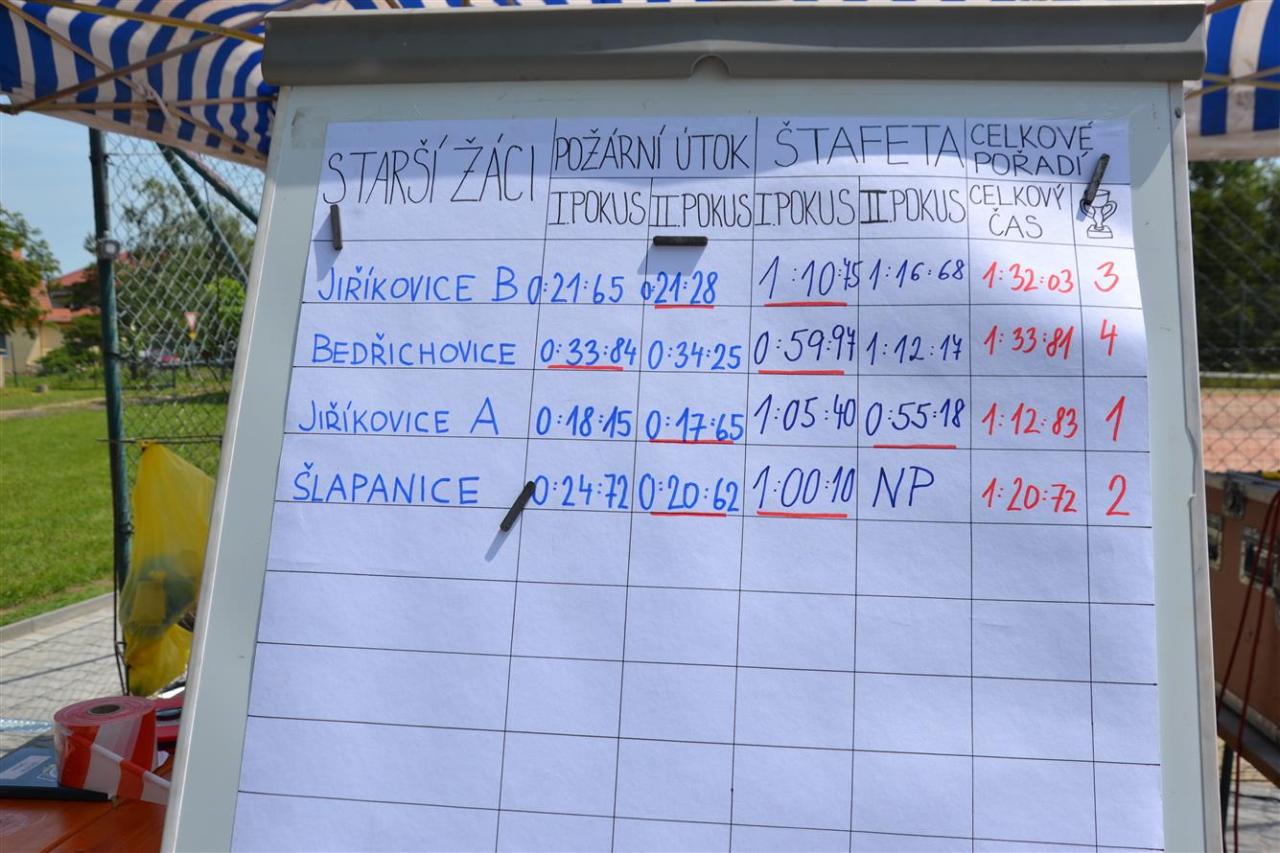 STARŠÍ ŽÁCI POŽÁRNÍ ÚTOK ŠTAFETA CELKOVÉ POŘADÍ
I. POKUS II. POKUS I. POKUS II. POKUS CELKOVÝ ČAS
JIŘÍKOVICE B 0:21:65 0:21:28 1:10:75 1:16:68 1:32:03 3
BEDŘICHOVICE 0:33:84 0:34:25 0:59:97 1:12:17 1:33:81 4
JIŘÍKOVICE A 0:18:15 0:17:65 1:05:40 0:55:18 1:12:83 1
ŠLAPANICE 0:24:72 0:20:62 1:00:10 NP 1:20:72 2